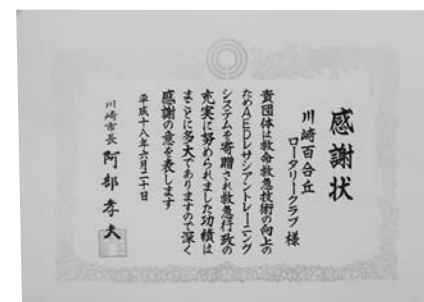 感謝状
川崎百合丘
ロータリークラブ 様
貴団体は救命救急技術の向上の
ためAEDレサシアントレーニング
システムを寄贈され救急行政の
充実に努められました功績は
まことに多大でありますので深く
感謝の意を表します
平成十八年六月二十日
川崎市長 阿部孝夫